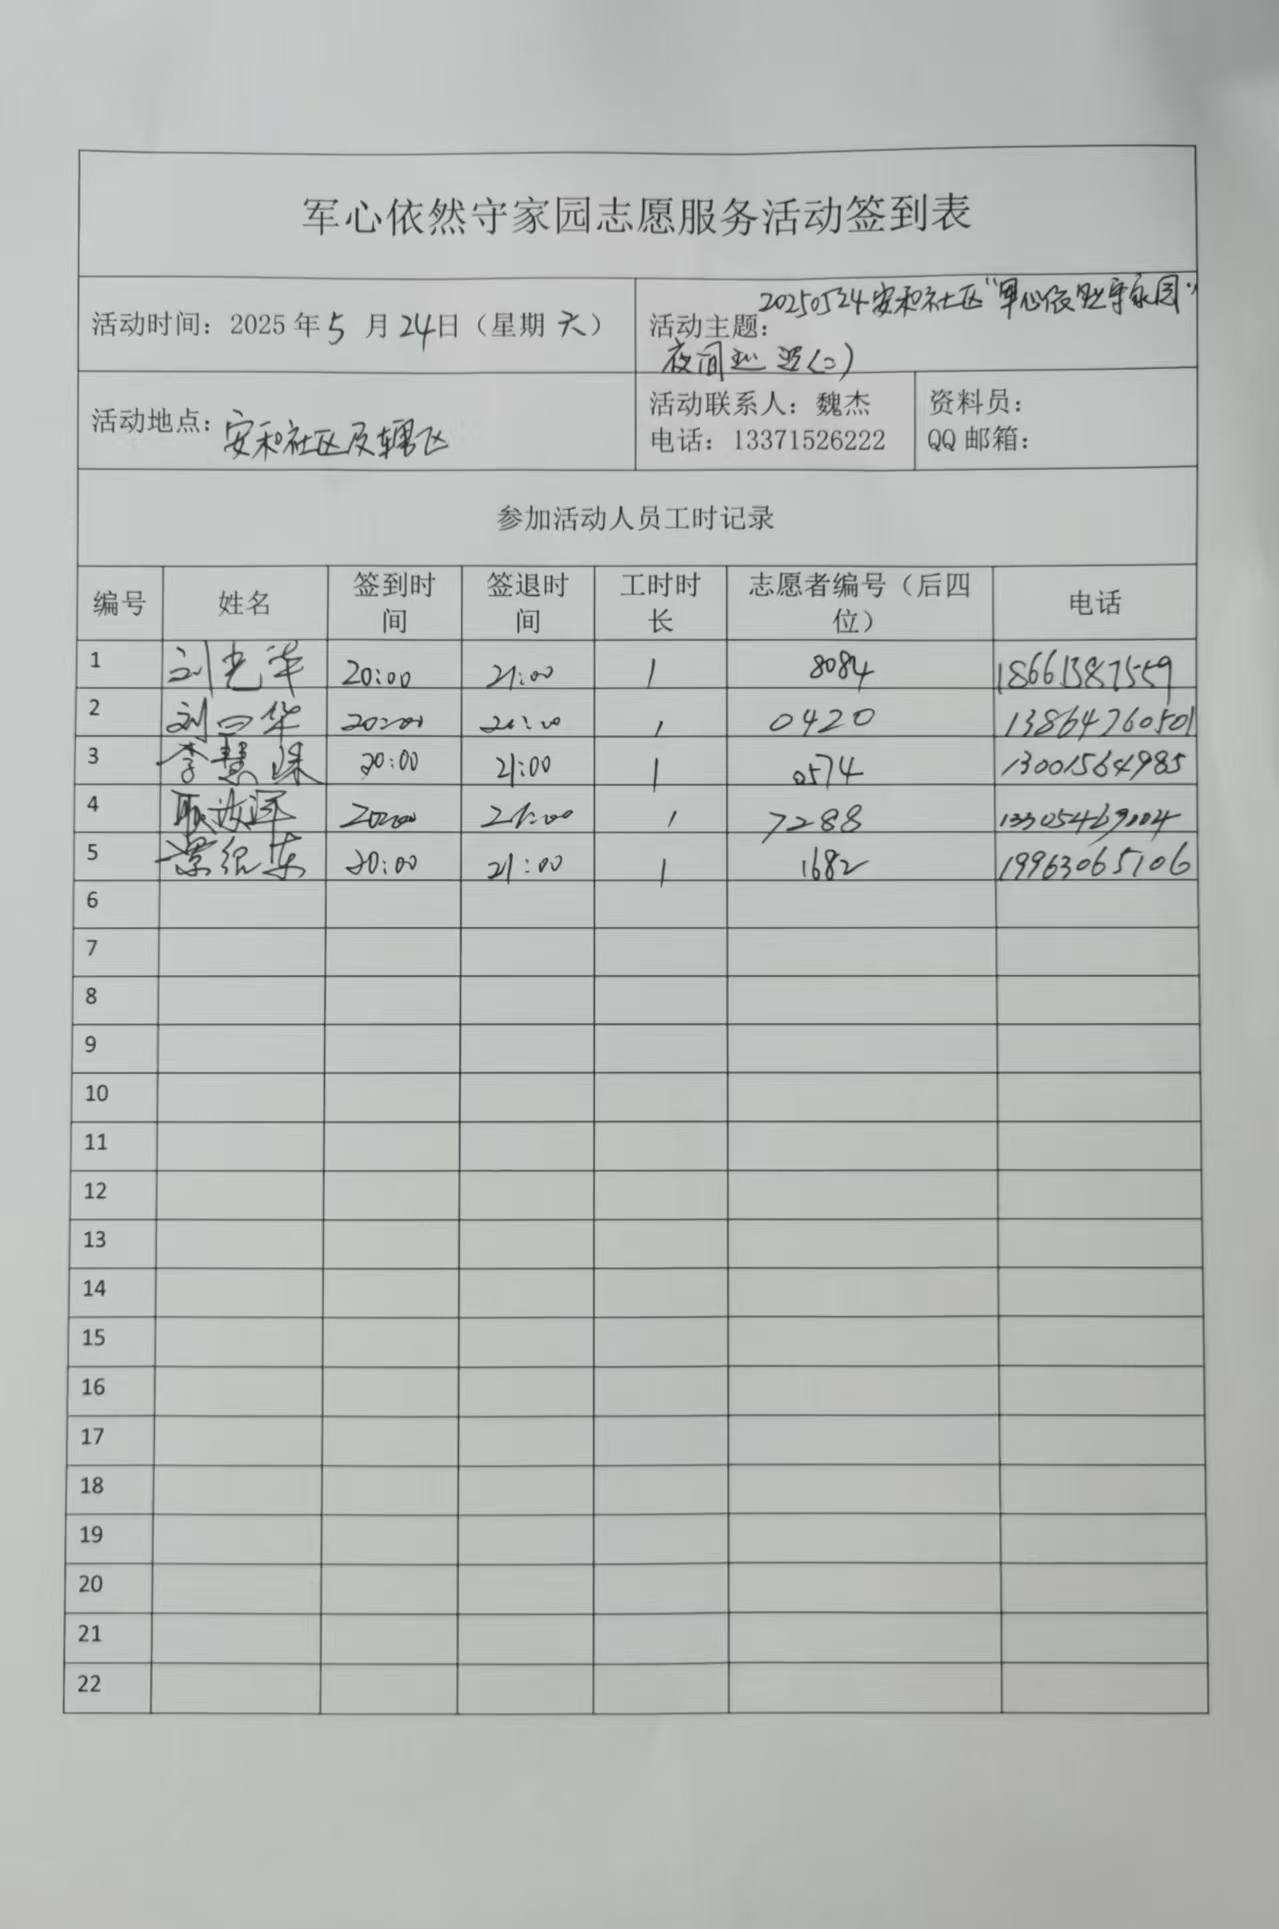 军心依然守家园志愿服务活动签到表
活动时间：2025年5月24日（星期六）
活动主题：20250524安和社区“军心依然守家园”
夜间巡逻(二)
活动地点：安和社区及辖区
活动联系人：魏杰
电话：13371526222
资料员：
QQ邮箱：
参加活动人员工时记录
编号 姓名 签到时间 签退时间 工时时长 志愿者编号（后四位） 电话
1 刘光华 20:00 21:00 1 8084 18661387559
2 刘 华 20:00 21:00 1 0420 13864760501
3 李慧 20:00 21:00 1 0574 13001564985
4 20:00 21:00 1 7288
5 景 东 20:00 21:00 1 1682 19963065106
6
7
8
9
10
11
12
13
14
15
16
17
18
19
20
21
22